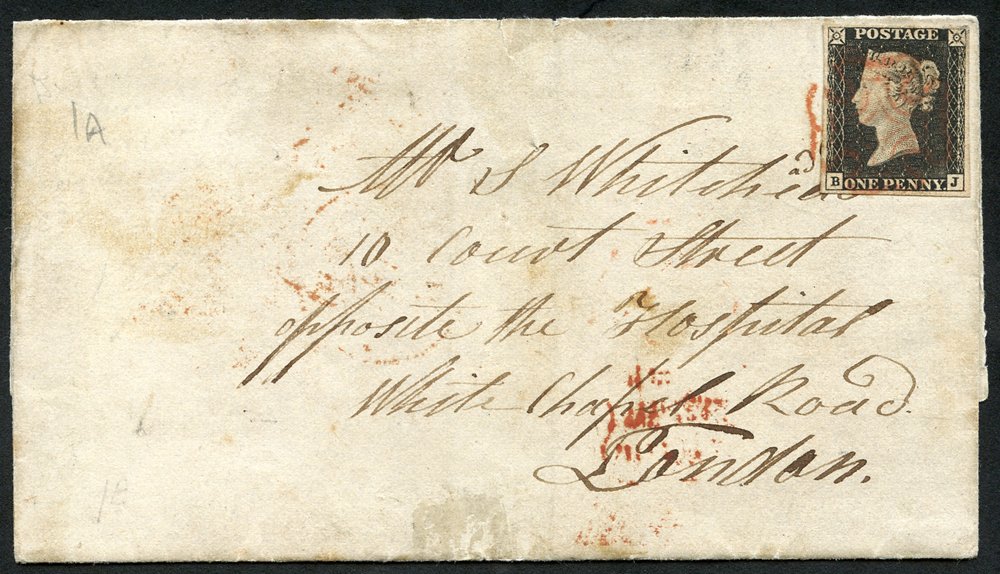 1A
POSTAGE
B ONE PENNY J
Mr S Whitehead
10 Court Street
opposite the Hospital
White Chapel Road.
London.